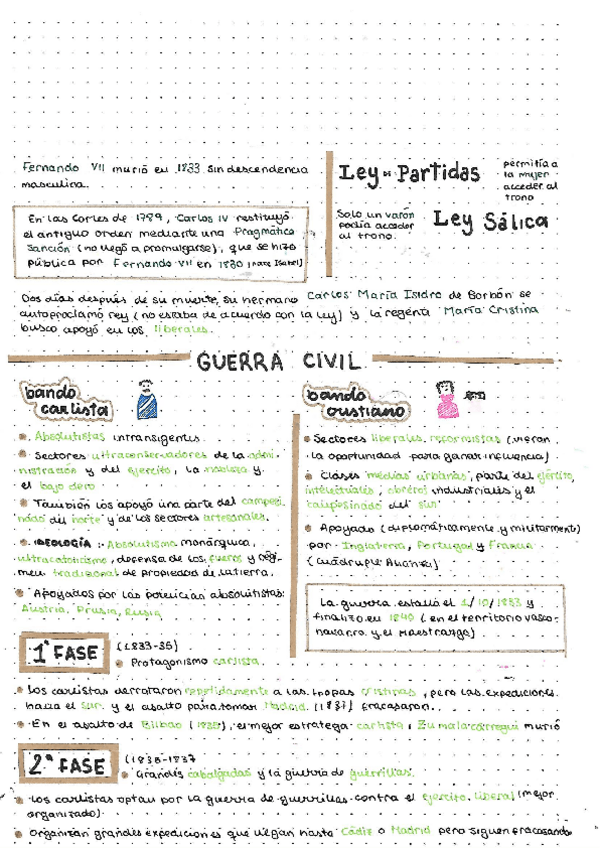 Fernando VII murió en 1833 sin descendencia
masculina.
Ley de Partidas
permitía a
la mujer
acceder al
trono
En las Cortes de 1789, Carlos IV restituyó
el antiguo orden mediante una Pragmática
Sanción (no llegó a promulgarse), que se hizo
pública por Fernando VII en 1830 (nace Isabel)
Solo un varón
podía acceder
al trono.
Ley Sálica
Dos días después de su muerte, su hermano Carlos María Isidro de Borbón se
autoproclamó rey (no estaba de acuerdo con la ley) y la regenta María Cristina
busco apoyó en los liberales.
GUERRA CIVIL
bando
carlista
Absolutistas intransigentes
Sectores ultraconservadores de la admi-
nistración y del ejército, la nobleza y
el bajo clero
También los apoyó una parte del campesi-
nado del norte y de los sectores artesanales.
IDEOLOGÍA: Absolutismo monárquico,
ultracatolicismo, defensa de los fueros y régi-
men tradicional de propiedad de la tierra.
Apoyados por las potencias absolutistas:
Austria, Prusia, Rusia
bando
cristiano
Sectores liberales reformistas (vieran
la oportunidad para ganar influencia)
Clases medias urbanas, parte del ejército,
intelectuales, obreros industriales y el
campesinado del sur
Apoyado (diplomáticamente y militarmente)
por Inglaterra, Portugal y Francia
(Cuádruple Alianza)
La guerra estalló el 1/10/1833 y
finalizó en 1840 (en el territorio vasco-
navarro y el Maestrazgo)
1ª FASE
(1833-35)
Protagonismo carlista
Los carlistas derrotaron repetidamente a las tropas cristinas, pero las expediciones
hacia el sur y el asalto para tomar Madrid (1837) fracasaron.
En el asalto de Bilbao (1835), el mejor estratega carlista, Zumalacárregui murió
2ª FASE
(1836-1837
Grandes cabalgadas y la guerra de guerrillas.
Los carlistas optan por la guerra de guerrillas contra el ejército liberal (mejor
organizado)
Organizan grandes expediciones que llegan hasta Cádiz o Madrid pero siguen fracasando